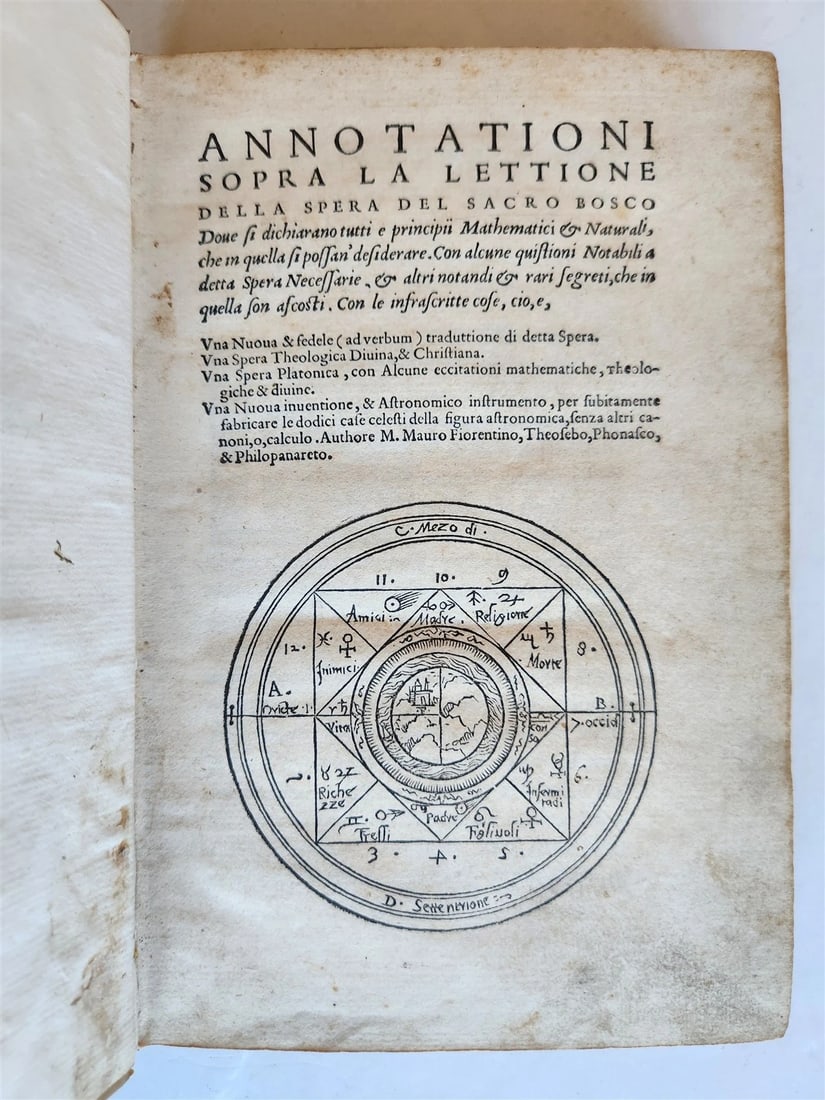 ANNOTATIONI
SOPRA LA LETTIONE
DELLA SPERA DEL SACRO BOSCO
Doue ſi dichiarano tutti e principii Mathematici & Naturali,
che in quella ſi poſſan' deſiderare. Con alcune quiſtioni Notabili a
detta Spera Neceſſarie, & altri notandi & rari ſegreti, che in
quella ſon aſcoſti. Con le infraſcritte coſe, cio, e,
Vna Nuoua & fedele ( ad verbum ) traduttione di detta Spera.
Vna Spera Theologica Diuina, & Chriſtiana.
Vna Spera Platonica, con Alcune eccitationi mathematiche, Theolo-
giche & diuine.
Vna Nuoua inuentione, & Aſtronomico inſtrumento, per ſubitamente
fabricare le dodici caſe celeſti della figura aſtronomica, ſenza altri ca-
noni, o, calculo. Authore M. Mauro Fiorentino, Theoſebo, Phonaſco,
& Philopanareto.
C. Mezo di.
11. 10. 9
Amici Madre. Religione
12. ♓ ♀ ♄ 8.
Inimici Morte
A. B.
1. Vita 7. occid
♉ 6.
Riche
zze
Infermi
Padre
♊ Figliuoli ♀
3 4. 5.
D. Settentrione